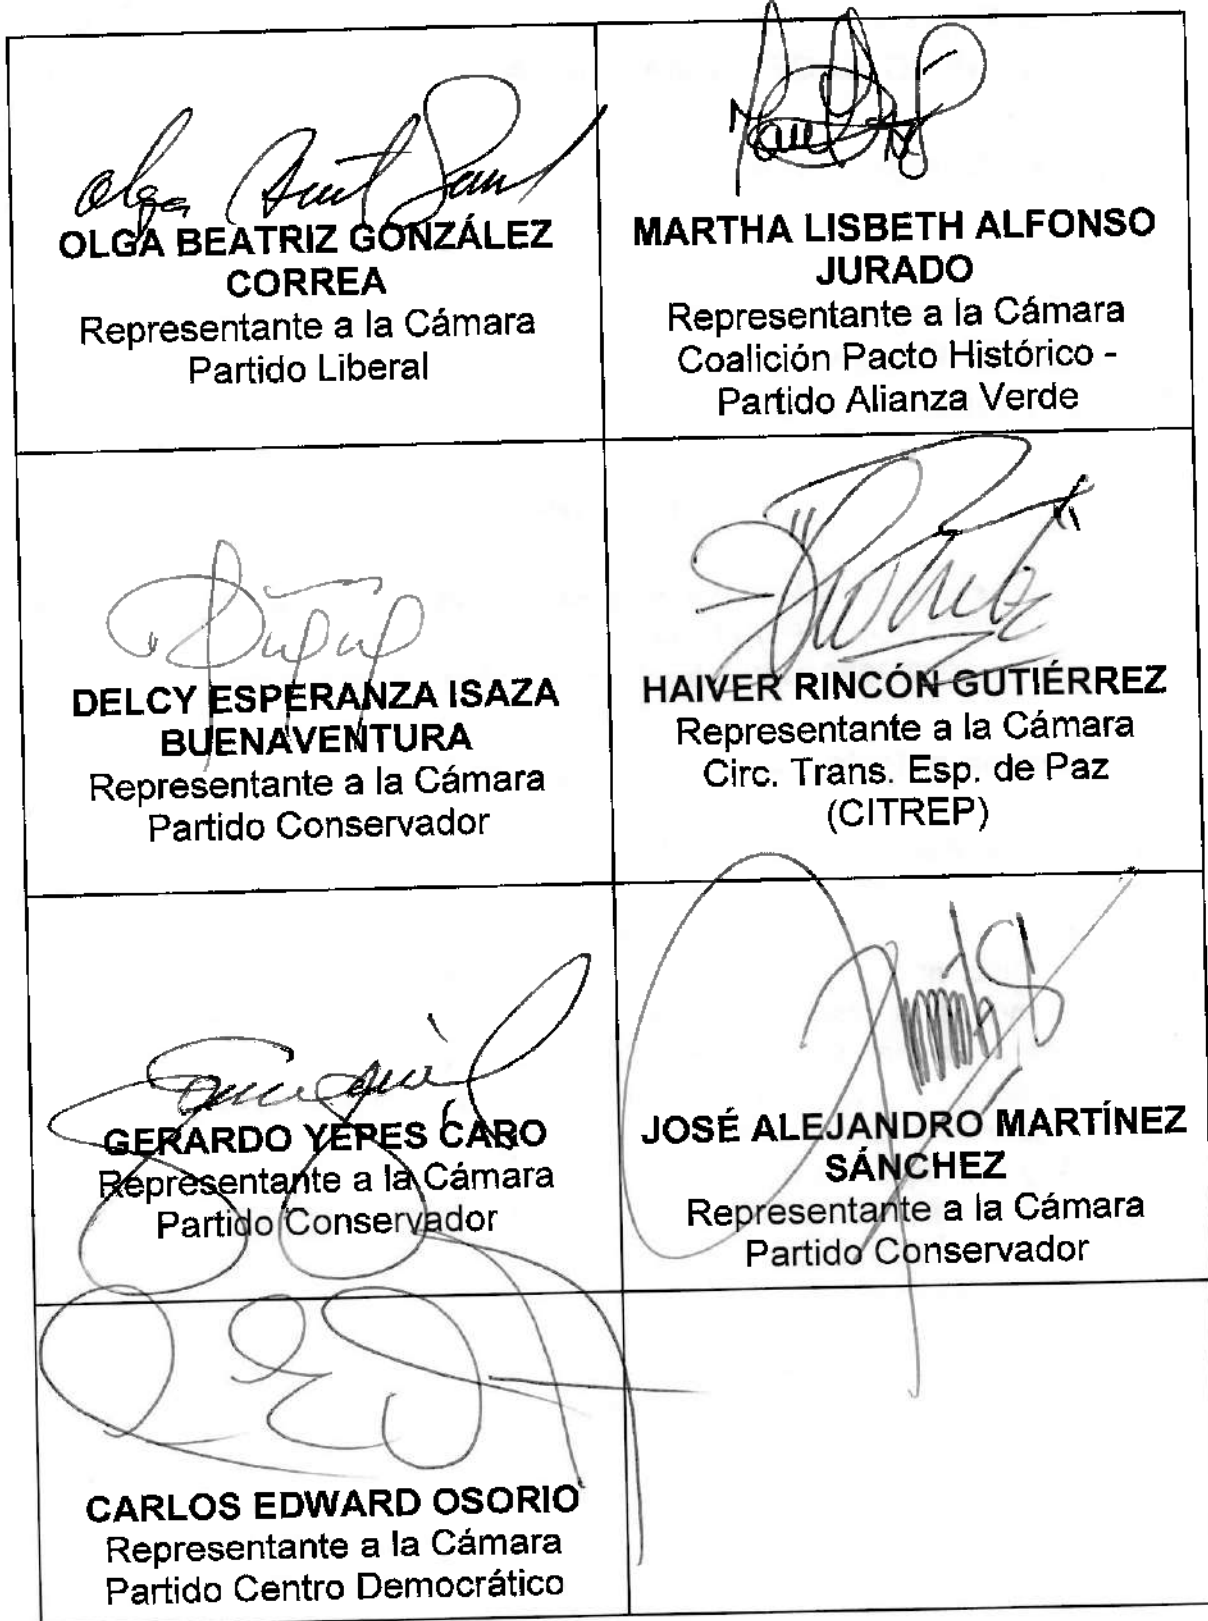 OLGA BEATRIZ GONZÁLEZ
CORREA
Representante a la Cámara
Partido Liberal
MARTHA LISBETH ALFONSO
JURADO
Representante a la Cámara
Coalición Pacto Histórico -
Partido Alianza Verde
DELCY ESPERANZA ISAZA
BUENAVENTURA
Representante a la Cámara
Partido Conservador
HAIVER RINCÓN GUTIÉRREZ
Representante a la Cámara
Circ. Trans. Esp. de Paz
(CITREP)
GERARDO YEPES CARO
Representante a la Cámara
Partido Conservador
JOSÉ ALEJANDRO MARTÍNEZ
SÁNCHEZ
Representante a la Cámara
Partido Conservador
CARLOS EDWARD OSORIO
Representante a la Cámara
Partido Centro Democrático